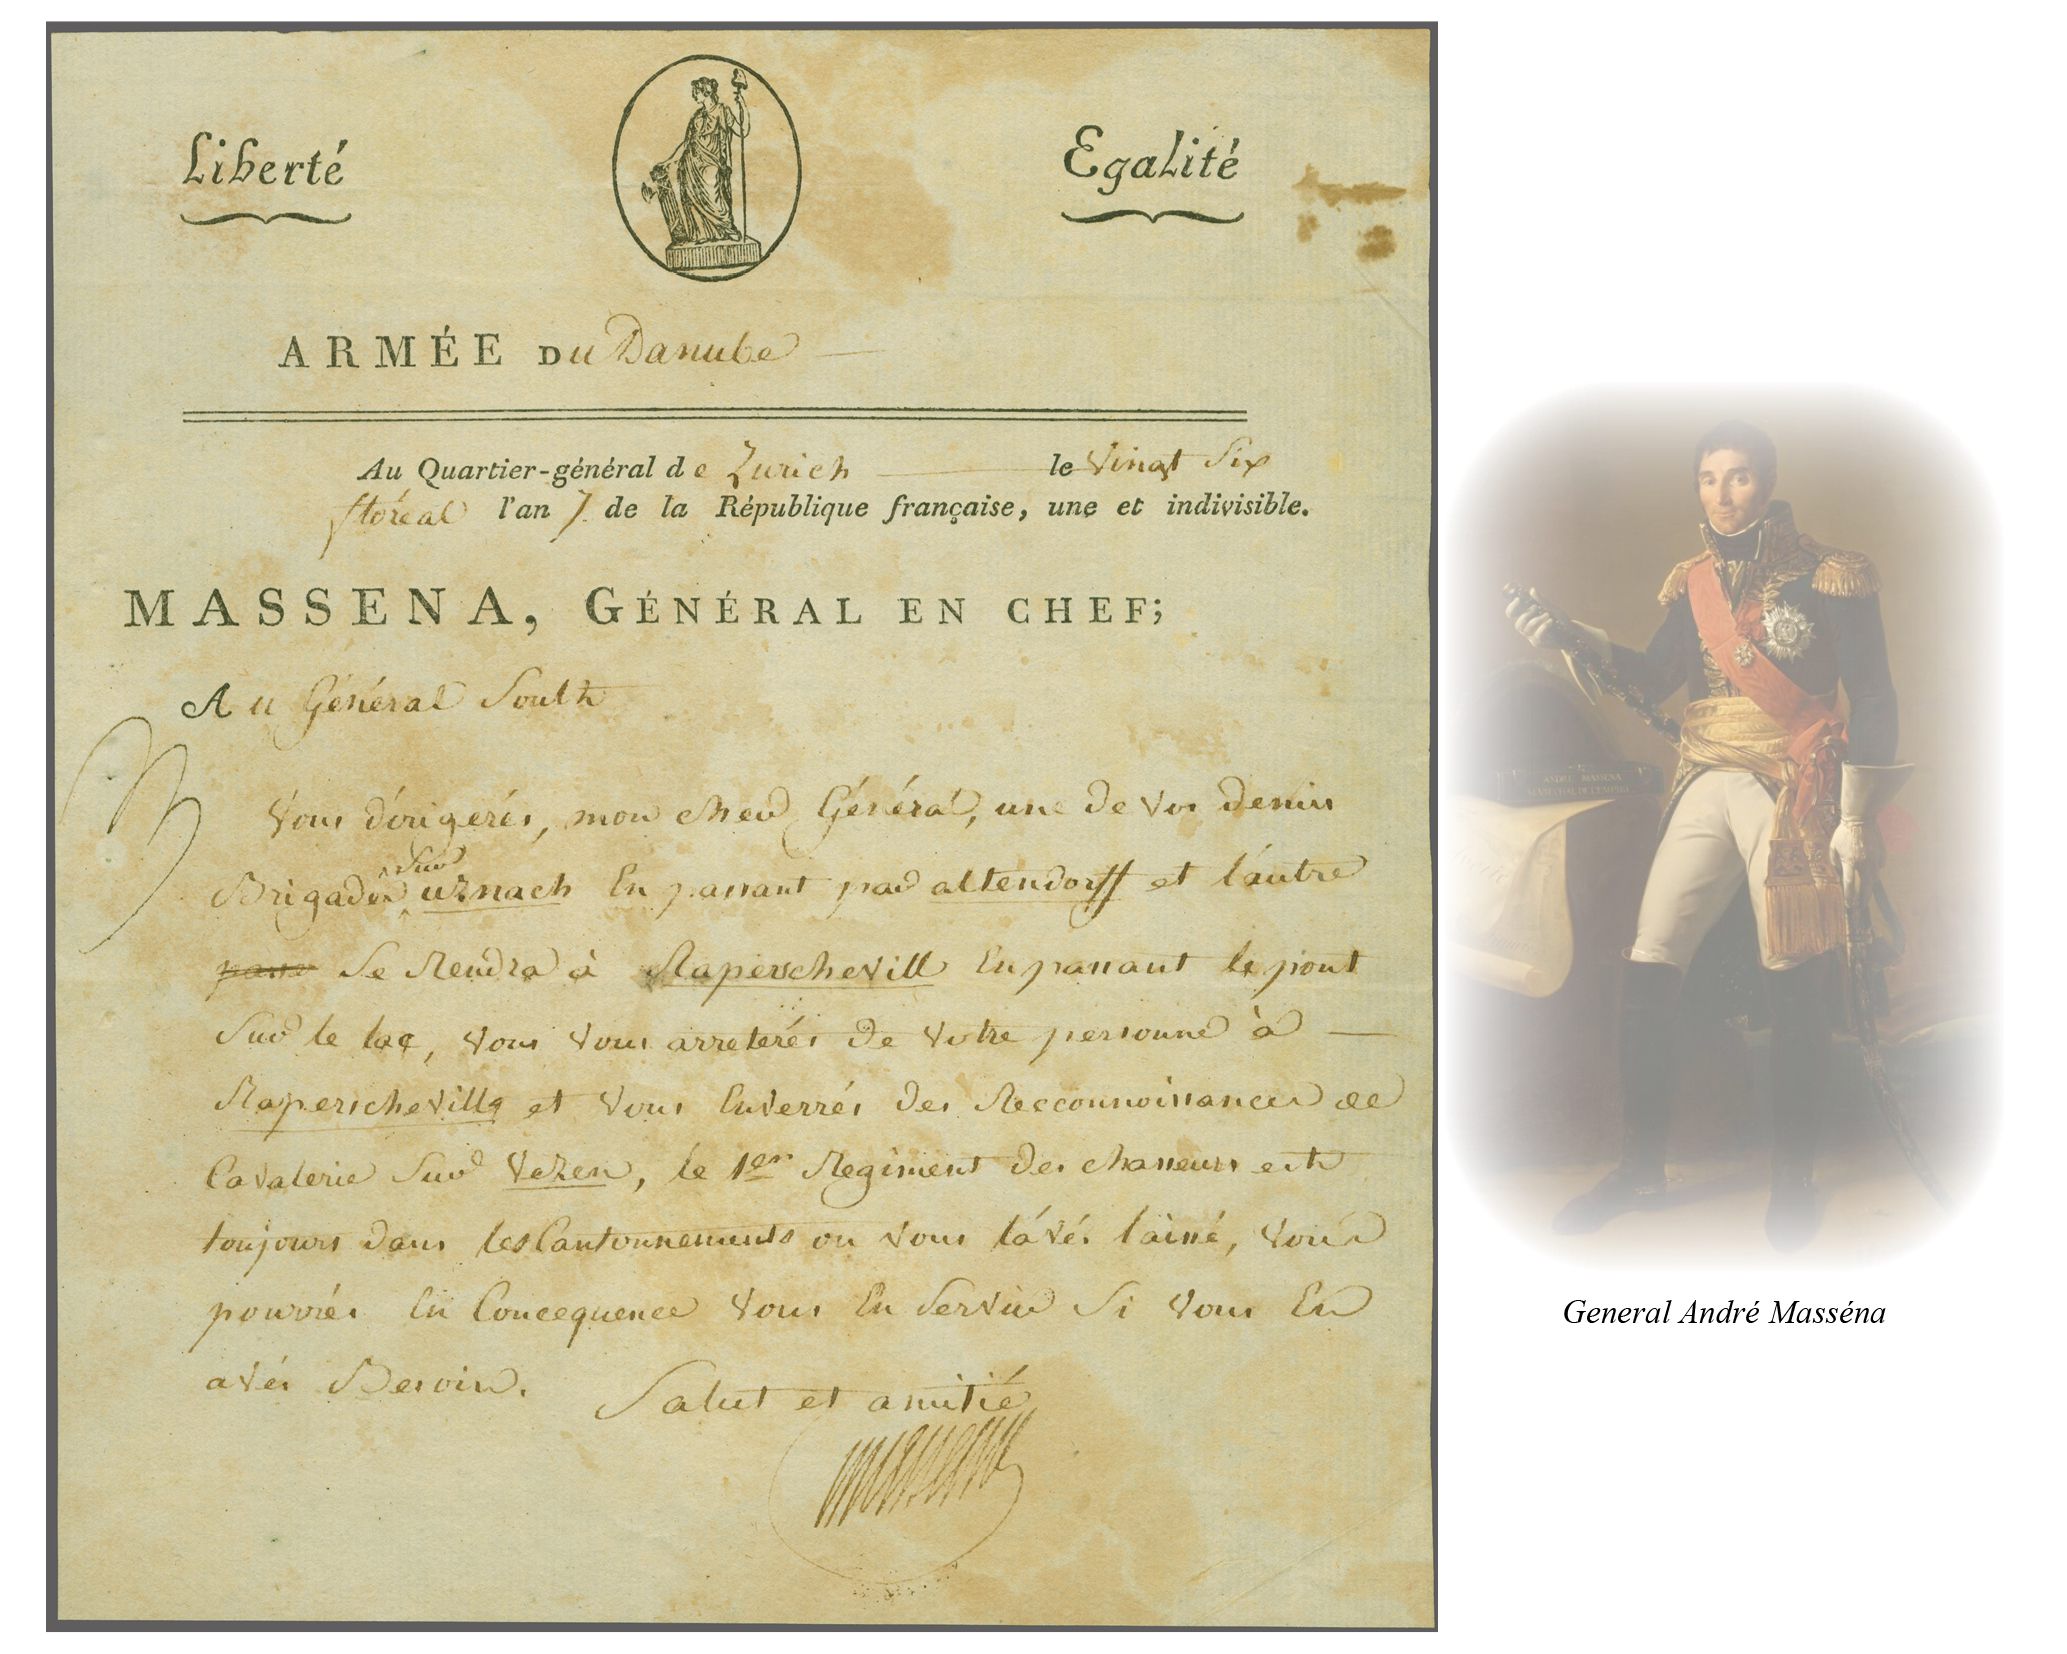 Liberté
Egalité
ARMÉE DU Danube
Au Quartier-général de Zurich le vingt Six
floréal l'an 7. de la République française, une et indivisible.
MASSENA, GÉNÉRAL EN CHEF;
Au Général Soult
Vous dirigerés, mon cher Général, une de vos demis
Sur
Brigades urnach En passant par altendorff et l'autre
passe Se Rendra à Raperscheville En passant le pont
Sur le lac, vous vous arreterés de votre personne à
Raperscheville et vous Enverrés des Reconnoissances de
Cavalerie Sur Vezen, le 1er Regiment des chasseurs est
toujours dans les Cantonnements ou vous l'avés laissé, vous
pourrés En Concequence vous En Servir Si vous En
avés Besoin.
Salut et amitié
massena
ANDRÉ MASSENA
MARÉCHAL DE L'EMPIRE
General André Masséna